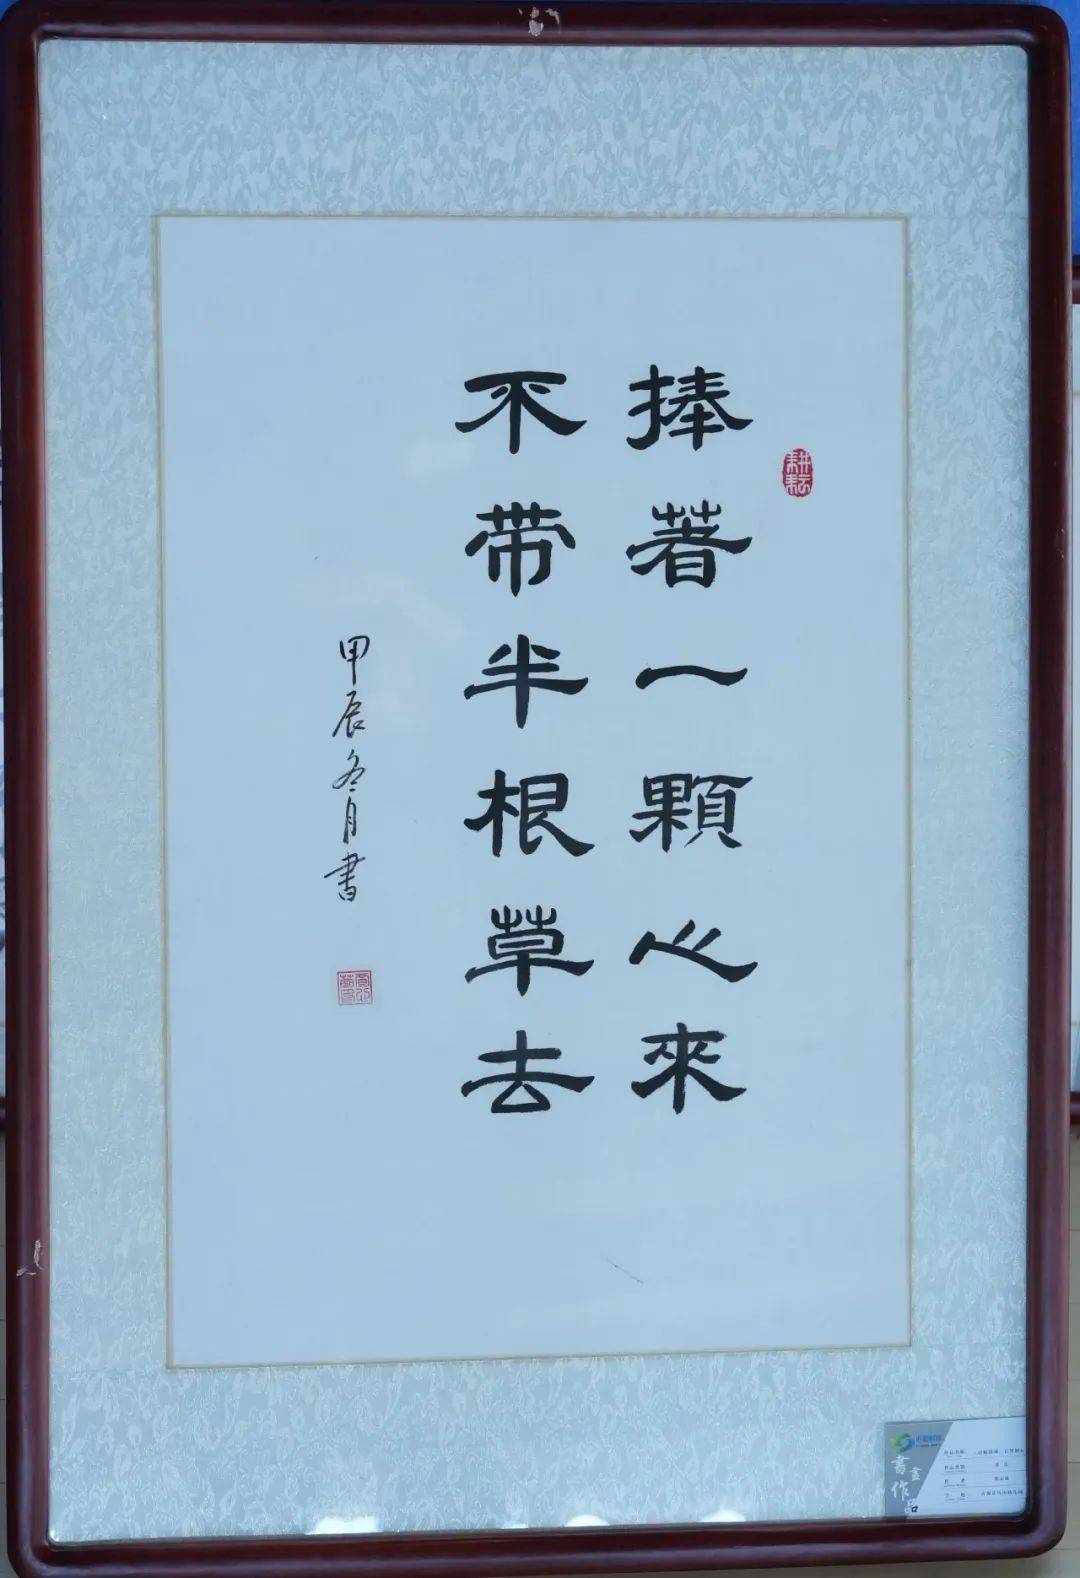 捧著一顆心來
不带半根草去
甲辰冬月書
耕耘
書畫作品